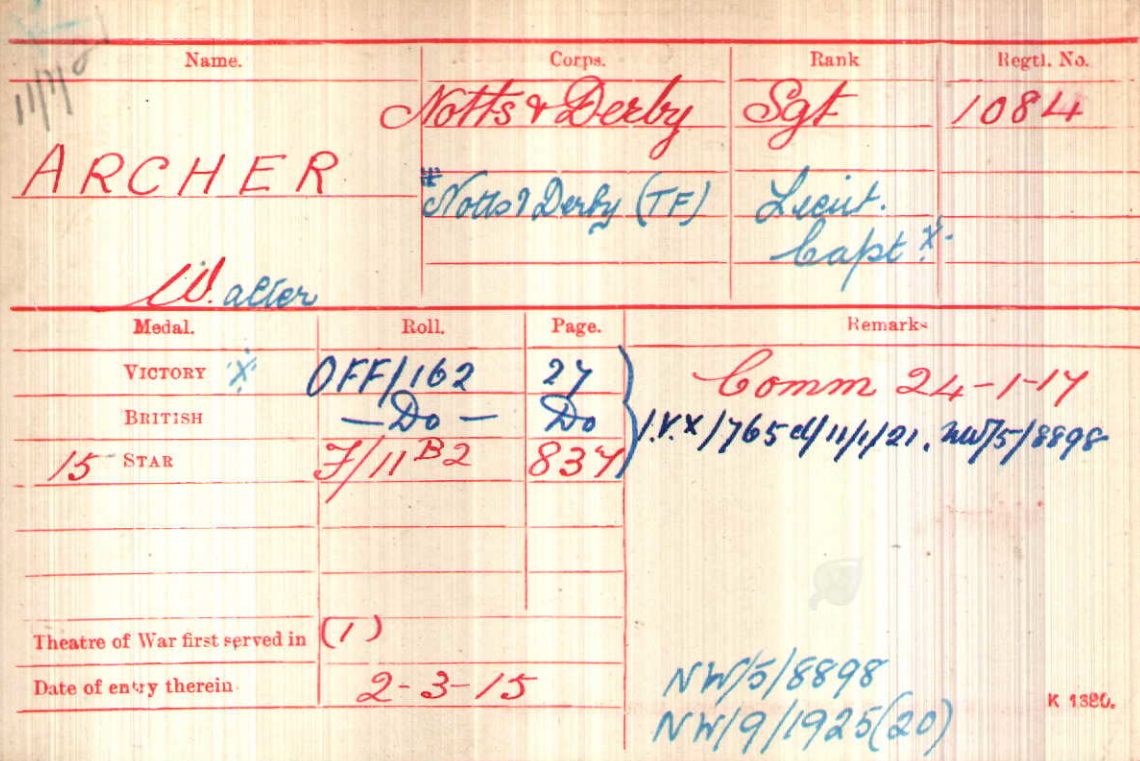 11/1/21
Name. Corps. Rank Regtl. No.
Notts & Derby Sgt 1084
ARCHER
# Notts & Derby (TF) Lieut.
Capt X.
W. alter
Medal. Roll. Page. Remarks
VICTORY X OFF/162 27 Comm 24-1-17
BRITISH — Do — Do I.V.X/765 d/11/1/21. NW/5/8898
15 STAR F/11 B2 837
Theatre of War first served in (1)
Date of entry therein 2-3-15
NW/5/8898
NW/9/1925(20)
K 1380.